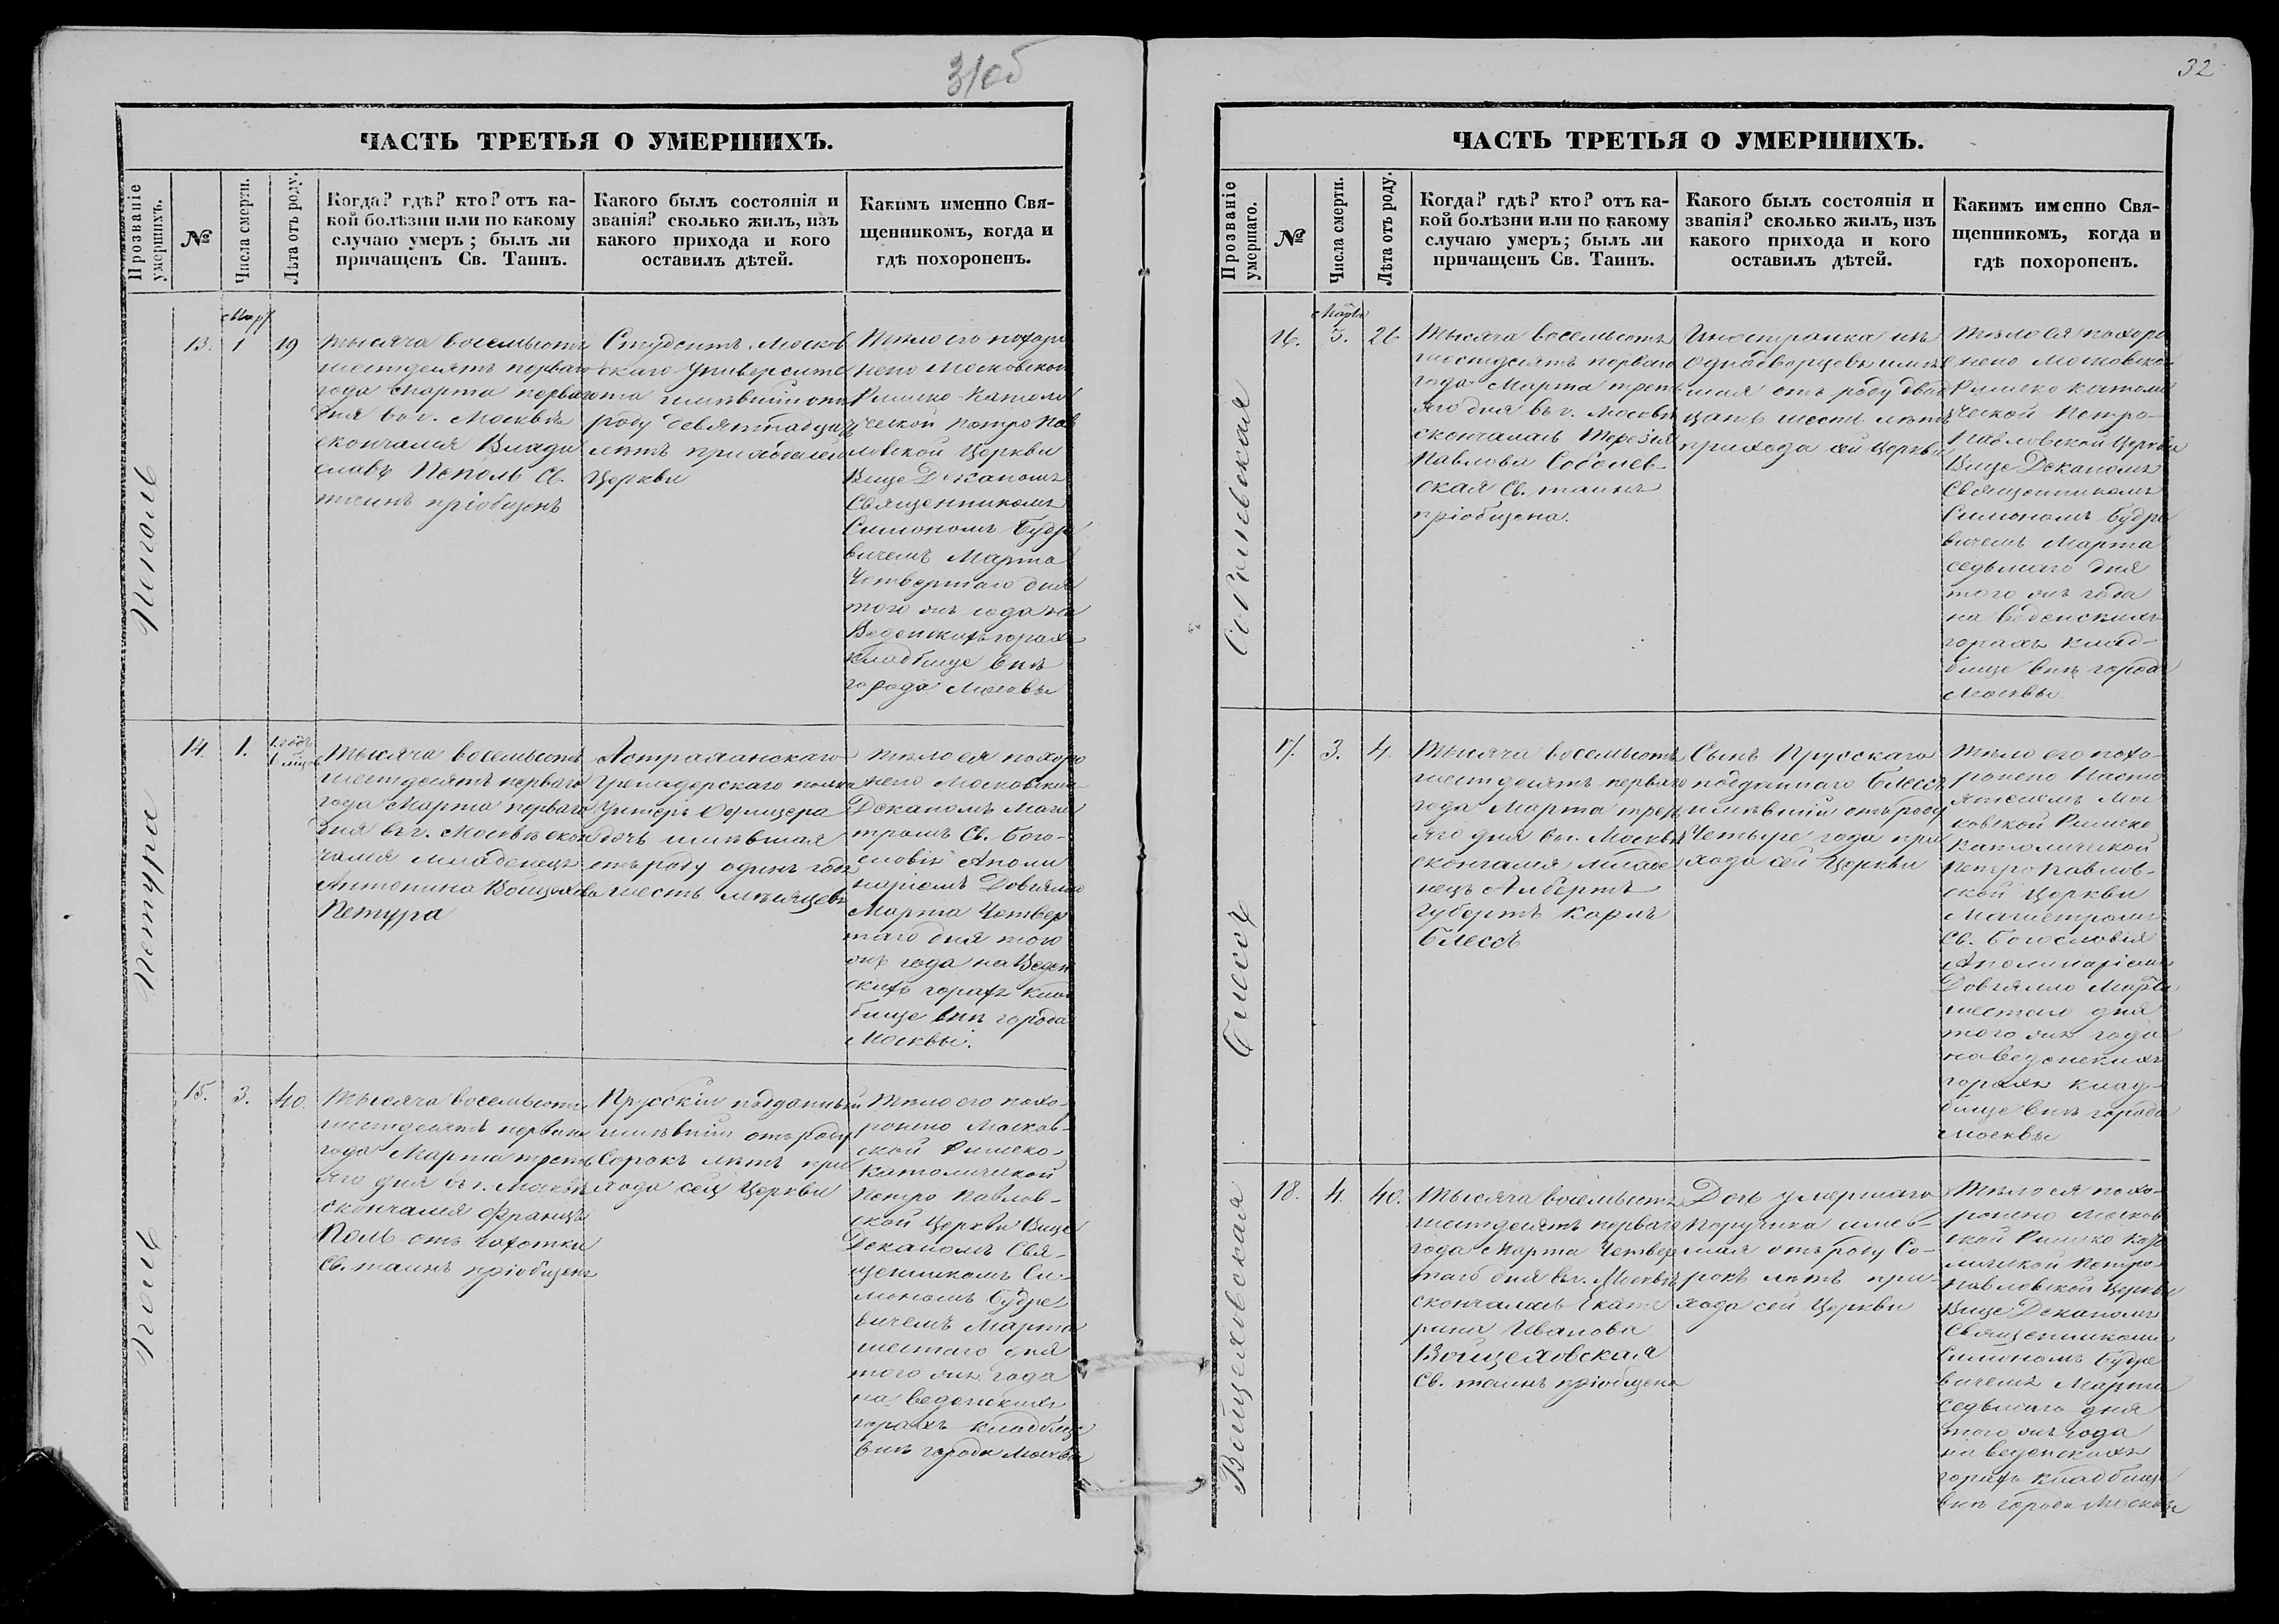 31об
ЧАСТЬ ТРЕТЬЯ О УМЕРШИХЪ.
Прозваніе умершихъ.
№
Числа смерти.
Лѣта отъ роду.
Когда? гдѣ? кто? отъ ка-
кой болѣзни или по какому
случаю умеръ; былъ ли
причащенъ Св. Таинъ.
Какого былъ состоянія и
званія? сколько жилъ, изъ
какого прихода и кого
оставилъ дѣтей.
Какимъ именно Свя-
щенникомъ, когда и
гдѣ похороненъ.
Пеполь
13.
Март
1
19
Тысяча восемьсотъ
шестдесятъ перваго
года Марта перваго
дня въ г. Москвѣ
скончался Влади
славъ Пеполь Св.
таинъ пріобщенъ
Студентъ Москов
скаго Университе
та имѣвшій отъ
роду девятнадцать
лѣтъ прихода сей
Церкви
Тѣло его похоро
нено Московской
Римско-Католи
ческой Петро Пав
ловской Церкви
Вице Деканомъ
Священникомъ
Симономъ Будре
вичемъ Марта
Четвертаго дня
того же года на
Веденскихъ горахъ
кладбище внѣ
города Москвы
Петура
14.
1.
1 годъ
6 мѣс.
Тысяча восемьсотъ
шестдесятъ перваго
года Марта перваго
дня въ г. Москвѣ скон
чался младенецъ
Антонина Войцехова
Петура
Астраханскаго
Гренадерскаго полка
Унтеръ Офицера
дочь имѣвшая
отъ роду одинъ годъ
шесть мѣсяцевъ
Тѣло ея похоро
нено Московскимъ
Деканомъ Маги
тромъ Св. Бого-
словія Аполи
наріемъ Довгялло
Марта Четвер
таго дня того
же года на Веден
скихъ горахъ клад
бище внѣ города
Москвы.
Поль
15.
3.
40.
Тысяча восемьсотъ
шестдесятъ перваго
года Марта треть
яго дня въ г. Москвѣ
скончался Францъ
Поль отъ чахотки
Св. таинъ пріобщенъ
Прусскій подданный
имѣвшій отъ роду
Сорокъ лѣтъ при
хода сей Церкви
Тѣло его похо-
ронено Москов-
ской Римско-
Католической
Петро Павлов-
ской Церкви Вице
Деканомъ Свя-
щенникомъ Си-
мономъ Будре-
вичемъ Марта
шестаго дня
того же года
на Веденскихъ
горахъ кладбище
внѣ города Москвы
32
ЧАСТЬ ТРЕТЬЯ О УМЕРШИХЪ.
Прозваніе умершаго.
№
Числа смерти.
Лѣта отъ роду.
Когда? гдѣ? кто? отъ ка-
кой болѣзни или по какому
случаю умеръ; былъ ли
причащенъ Св. Таинъ.
Какого былъ состоянія и
званія? сколько жилъ, изъ
какого прихода и кого
оставилъ дѣтей.
Какимъ именно Свя-
щенникомъ, когда и
гдѣ похороненъ.
Соболевская
16.
Марта
3.
26
Тысяча восемьсотъ
шестдесятъ перваго
года Марта треть
яго дня въ г. Москвѣ
скончалась Терезія
Павлова Соболев-
ская Св. таинъ
пріобщена.
Иностранка изъ
однодворцевъ имѣв
шая отъ роду двад
цать шесть лѣтъ
прихода сей Церкви
Тѣло ея похоро
нено Московской
Римско католи
ческой Петро-
Павловской Церкви
Вице Деканомъ
Священникомъ
Симономъ Будре
вичемъ Марта
седьмаго дня
того же года
на Веденскихъ
горахъ клад-
бище внѣ города
Москвы.
Блессъ
17.
3.
4.
Тысяча восемьсотъ
шестдесятъ перваго
года Марта треть
яго дня въ г. Москвѣ
скончался младе
нецъ Албертъ
Губертъ Карлъ
Блессъ
Сынъ Прусскаго
подданнаго Блессъ
имѣвшій отъ роду
Четыре года при
хода сей Церкви
Тѣло его похо-
ронено Насто
ятелемъ Мос
ковской Римско
Католической
Петро Павлов-
ской Церкви
Магистромъ
Св. Богословія
Аполинаріемъ
Довгялло Марта
шестаго дня
того же года
на Веденскихъ
горахъ клад-
бище внѣ города
Москвы
Войцеховская
18.
4.
40.
Тысяча восемьсотъ
шестдесятъ перваго
года Марта Четвер
таго дня въ г. Москвѣ
скончалась Екате
рина Иванова
Войцеховская
Св. таинъ пріобщена
Дочь умершаго
Поручика имѣв-
шая отъ роду Со-
рокъ лѣтъ при-
хода сей Церкви
Тѣло ея похо-
ронено Москов
ской Римско Като
лической Петро-
Павловской Церкви
Вице Деканомъ
Священникомъ
Симономъ Будре
вичемъ Марта
седьмаго дня
того же года
на Веденскихъ
горахъ кладбище
внѣ города Москвы